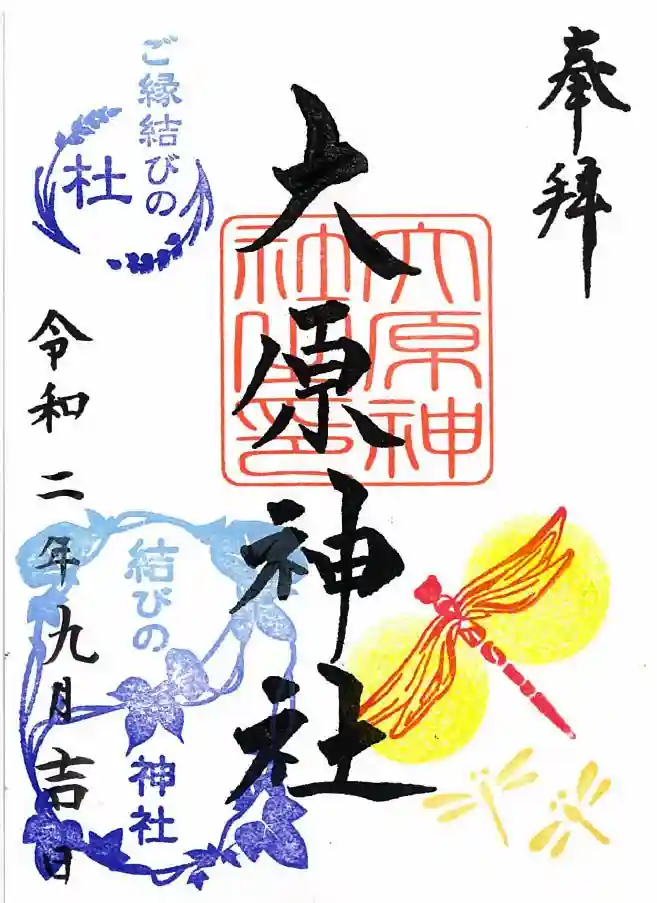 奉拝
大原神社
大原神
社之印
ご縁結びの
杜
令和二年九月吉日
結びの
神社